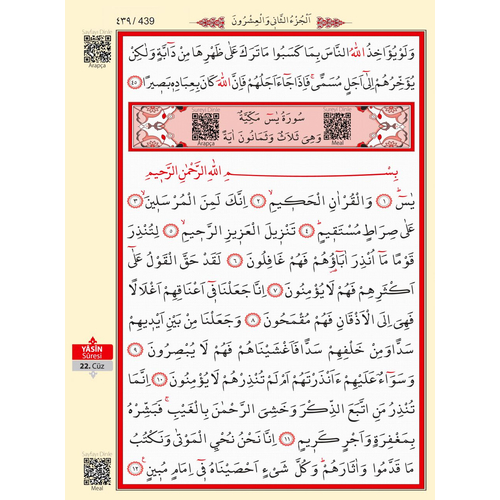 ٤٣٩ / 439
اَلْجُزْءُ الثَّانِي وَالْعِشْرُونَ
Sayfayı Dinle
Arapça
وَلَوْ يُؤَاخِذُ اللّٰهُ النَّاسَ بِمَا كَسَبُوا مَا تَرَكَ عَلٰى ظَهْرِهَا مِنْ دَٓابَّةٍ وَلٰكِنْ
يُؤَخِّرُهُمْ اِلٰٓى اَجَلٍ مُسَمًّىۚ فَاِذَا جَٓاءَ اَجَلُهُمْ فَاِنَّ اللّٰهَ كَانَ بِعِبَادِه۪ بَص۪يرًا ﴿٤٥﴾
Sureyi Dinle
Arapça
سُورَةُ يٰسٓ مَكِّيَّةٌ
وَهِيَ ثَلَاثٌ وَثَمَانُونَ اٰيَةً
Sureyi Dinle
Meal
بِسْمِ اللّٰهِ الرَّحْمٰنِ الرَّح۪يمِ
يٰسٓۜ ﴿١﴾ وَالْقُرْاٰنِ الْحَك۪يمِۙ ﴿٢﴾ اِنَّكَ لَمِنَ الْمُرْسَل۪ينَۙ ﴿٣﴾
عَلٰى صِرَاطٍ مُسْتَق۪يمٍۜ ﴿٤﴾ تَنْز۪يلَ الْعَز۪يزِ الرَّح۪يمِۙ ﴿٥﴾ لِتُنْذِرَ
قَوْمًا مَٓا اُنْذِرَ اٰبَٓاؤُ۬هُمْ فَهُمْ غَافِلُونَ ﴿٦﴾ لَقَدْ حَقَّ الْقَوْلُ عَلٰٓى
اَكْثَرِهِمْ فَهُمْ لَا يُؤْمِنُونَ ﴿٧﴾ اِنَّا جَعَلْنَا ف۪ٓي اَعْنَاقِهِمْ اَغْلَالًا
فَهِيَ اِلَى الْاَذْقَانِ فَهُمْ مُقْمَحُونَ ﴿٨﴾ وَجَعَلْنَا مِنْ بَيْنِ اَيْد۪يهِمْ
سَدًّا وَمِنْ خَلْفِهِمْ سَدًّا فَاَغْشَيْنَاهُمْ فَهُمْ لَا يُبْصِرُونَ ﴿٩﴾
وَسَوَٓاءٌ عَلَيْهِمْ ءَاَنْذَرْتَهُمْ اَمْ لَمْ تُنْذِرْهُمْ لَا يُؤْمِنُونَ ﴿١٠﴾ اِنَّمَا
تُنْذِرُ مَنِ اتَّبَعَ الذِّكْرَ وَخَشِيَ الرَّحْمٰنَ بِالْغَيْبِۚ فَبَشِّرْهُ
بِمَغْفِرَةٍ وَاَجْرٍ كَر۪يمٍ ﴿١١﴾ اِنَّا نَحْنُ نُحْيِ الْمَوْتٰى وَنَكْتُبُ
مَا قَدَّمُوا وَاٰثَارَهُمْۜ وَكُلَّ شَيْءٍ اَحْصَيْنَاهُ ف۪ٓي اِمَامٍ مُب۪ينٍ۟ ﴿١٢﴾
YÂSİN
Sûresi
22. Cüz
Sayfayı Dinle
Meal